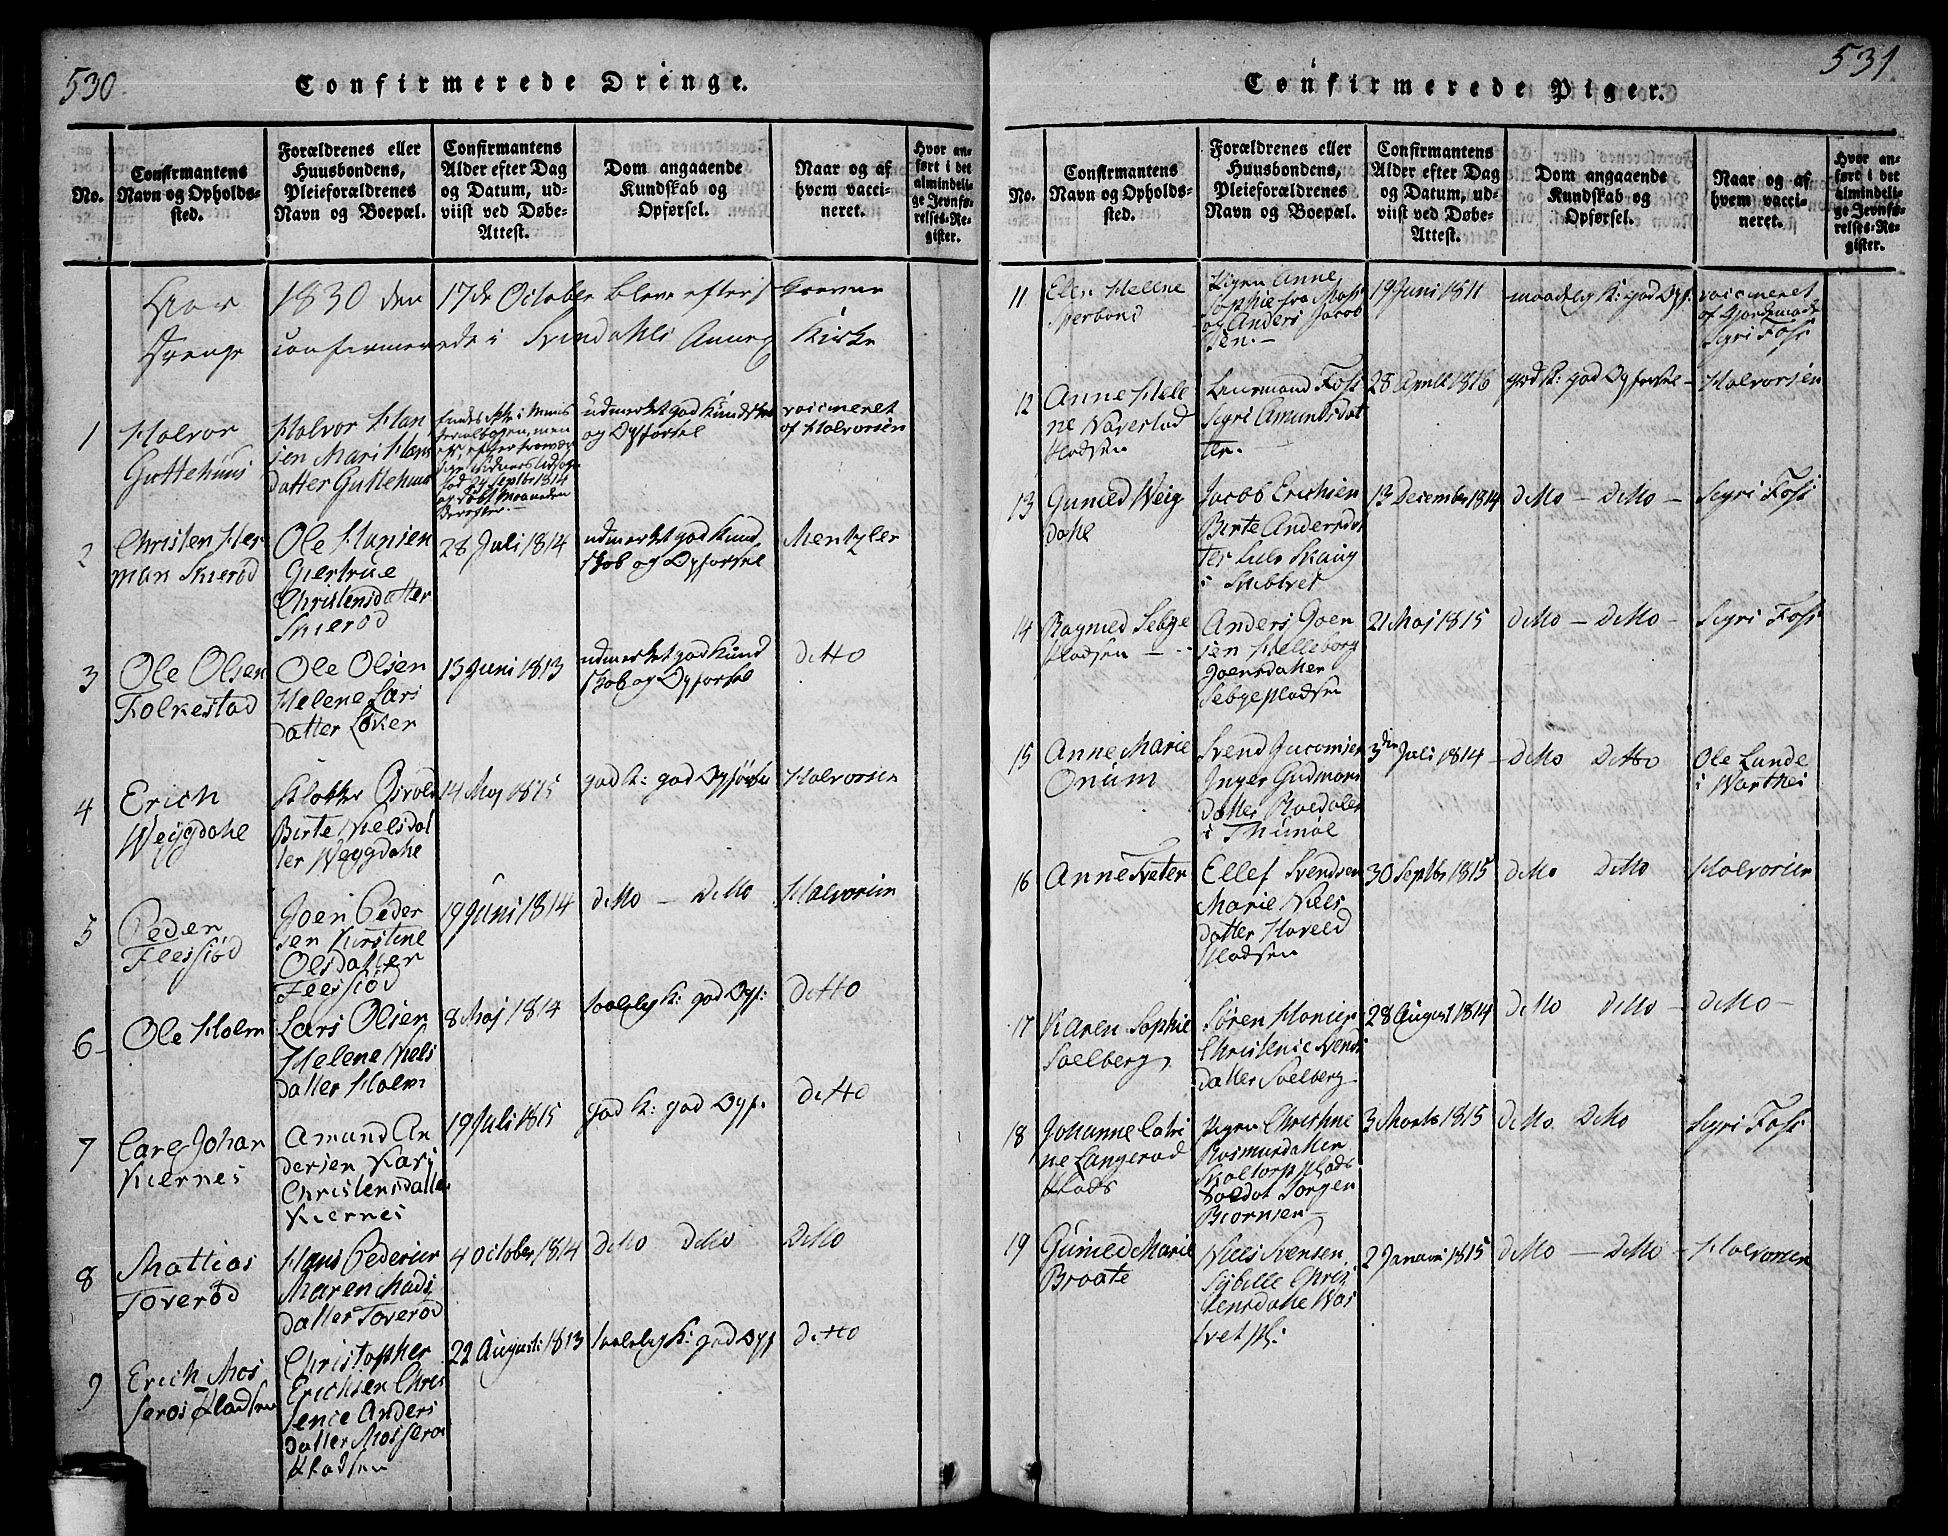 530
Confirmerede Drenge.
No.
Confirmantens
Navn og Opholds-
sted.
Forældrenes eller
Huusbondens,
Pleieforældrenes
Navn og Boepæl.
Confirmantens
Alder efter Dag
og Datum, ud-
viist ved Døbe-
Attest.
Dom angaaende
Kundskab og
Opførsel.
Naar og af
hvem vacci-
neret.
Hvor an-
ført i det
almindeli-
ge Jevnfø-
relses-Re-
gister.
Aar 1830 den 17de October bleve efterskrevne
Drenge confirmerede i Svindahls Annex Kirke
1
Halvor
Guttehuus
Halvor Han
sen Mari Hans
datter Guttehuus
udmerket god Kundskab
og Opførsel
vaccineret
af Halvorsen
2
Christen Her
man Skierød
Ole Hansen
Giertrue
Christensdatter
Skierød
28 Juli 1814
udmerket god Kund
skab og Opførsel
Mentzler
3
Ole Olsen
Folkestad
Ole Olsen
Helene Lars
datter Løker
13 Juni 1813
udmerket god Kund
skab og Opførsel
detto
4
Erich
Weygdahl
Birte Nielsdat
ter Weygdahl
14 Maj 1815
god K: god Opførsel
Halvorsen
5
Peder
Flessiød
Joen Peder
sen Kirstine
Olsdatter
Flessiød
19 Juni 1814
detto — detto
Halvorsen
6
Ole Holm
Lars Olsen
Helene Niels
datter Holm
8 Maj 1814
taalelig K: god Opf:
detto
7
Carl Johan
Kiernes
Amund An
dersen Kari
Christensdatter
Kiernes
19 Juli 1815
god K: god Opf.
detto
8
Mattias
Toverød
Hans Pedersen
Maren Mads
datter Toverød
4 October 1814
detto detto
detto
9
Erich Mos
seros Pladsen
Christopher
Erichsen Chris
tence Anders
datter Mosseros
Pladsen
22 August: 1813
taalelig K: god Opf
detto
531
Confirmerede Piger.
No.
Confirmantens
Navn og Opholds-
sted.
Forældrenes eller
Huusbondens,
Pleieforældrenes
Navn og Boepæl.
Confirmantens
Alder efter Dag
og Datum, ud-
viist ved Døbe-
Attest.
Dom angaaende
Kundskab og
Opførsel.
Naar og af
hvem vacci-
neret.
Hvor an-
ført i det
almindeli-
ge Jevnfø-
relses-Re-
gister.
11
Elen Helene
Sperbond
Pigen Anne
Sophie fra Moss
og Anders Jacob
sen.—
19 Juni 1811
maadelig K: god Opf.
vaccineret
af Gjordemoder
Sigri Foss
12
Anne Hele
ne Navestad
Pladsen
Leurmand Foss
Sigri Amundsdat
ter.
28 April 1816
god K: god Opførsel —
Halvorsen
13
Gunild Weig
dahl
Jacob Erichsen
Birte Andersdat
ter
i Skibtvet
13 December 1814
detto — detto —
Sigri Foss
14
Ragnild Sebge
Pladsen —
Anders Joen
sen Helleborg
Joensdatter
Sebgepladsen
21 Maj 1815
detto — detto —
Sigri Foss
15
Anne Marie
Onum
Svend Guttormsen
Inger Gudmans
datter
i Thimøe
3die Juli 1814 —
detto detto
Ole Lunde
i Warthei
16
Anne Tveter
Ellef Svendsen
Marie Niels
datter Haveld
Pladsen
30 Septbr 1815
detto detto
Halvorsen
17
Karen Sophie
Soelberg
Søren Hansen
Christense Svends
datter Soelberg
28 August 1814
detto detto —
detto —
18
Johanne Catri
ne Langerød
Plads
Pigen Christine
Rasmusdatter
Skaltorp Plads
Soldat Jørgen
Biørnsen —
3 Marts 1815
detto. detto
Sigri Foss
19
Gunild Marie
Braate
Niels Svensen
Sybille Chris
tensdatter Was
tvet pl:
2 Januari 1815
detto — detto —
Halvorsen